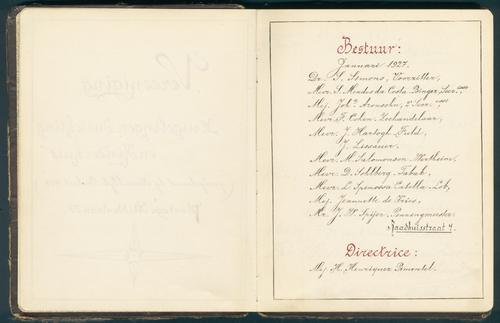 Bestuur:
Januari 1927.
Dr. S. Simons, Voorzitter,
Mevr. S. Mendes da Costa Benger,
Mej. Joha. Aronsohn,
Mevr. F. Cohen-Zeehandelaar,
Mevr. J. Hartogh-Fuld,
J. Lissauer,
Mevr. M. Salomonson-Wertheim,
Mevr. D. Sohlberg-Tabak,
Mevr. L. Spinossa Catella-Lob,
Mej. Jeannette de Vries,
Mr. J. W. Spijer, Penningmeester
Raadhuisstraat 7.
Directrice:
Mej. H. Henriquez Pimentel.